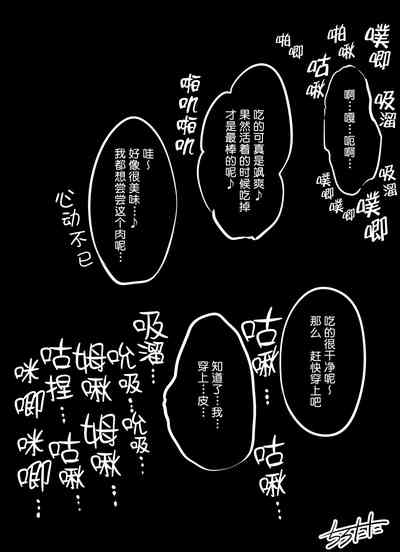 噗唧
啪
啾
啪
唧
咕
啾
吸溜
啊…嘎…呃啊…
噗唧
噗唧
噗唧
吃的可真是飒爽♪
果然活着的时候吃掉
才是最棒的呢♪
啪叽
啪叽
哇～
好像很美味…♪
我都想尝尝这个肉呢…
心动不已
吃的很干净呢～
那么 赶快穿上吧
咕啾…
咕啾…
知道了…我…
穿上…皮…
吸溜…
吮吸…
吮吸…
姆啾…
姆啾…
咕捏…
咕啾…
咪唧…
咪唧…